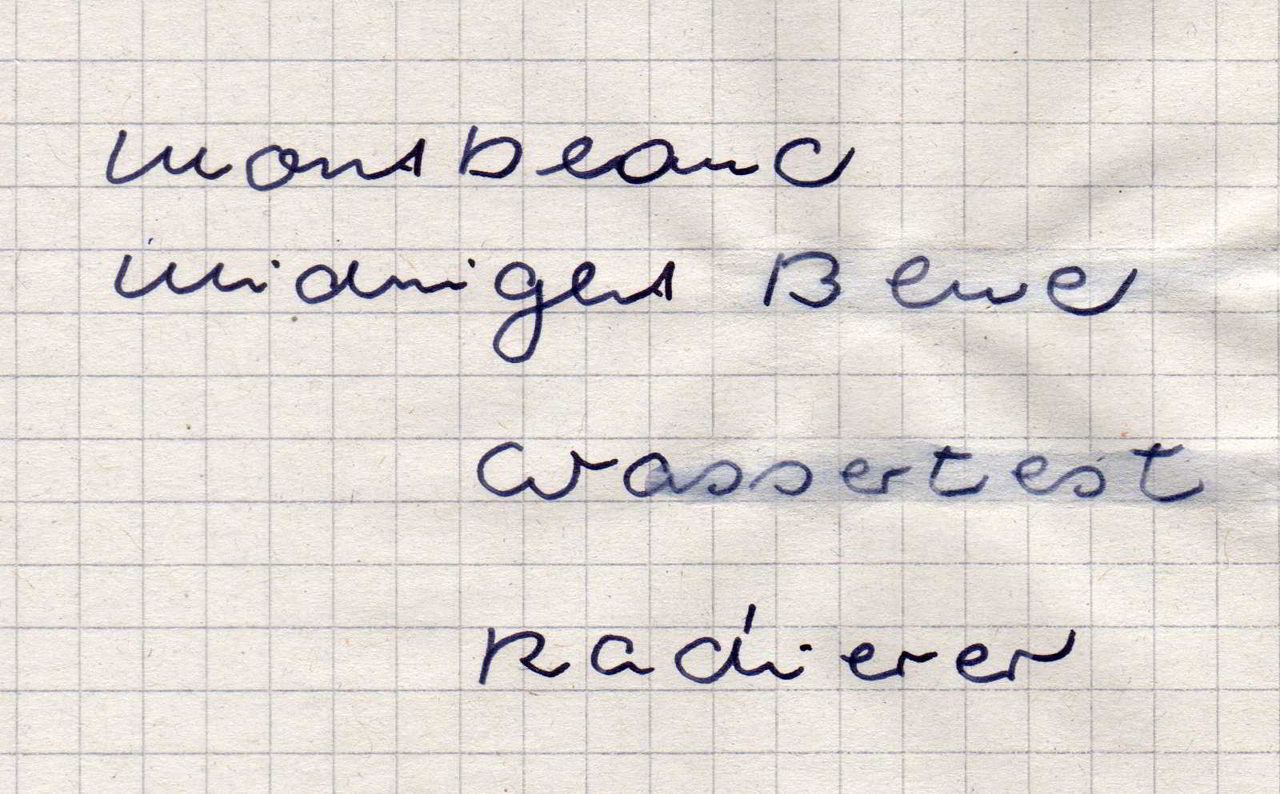 Montblanc
Midnight Blue
Wassertest
Radierer